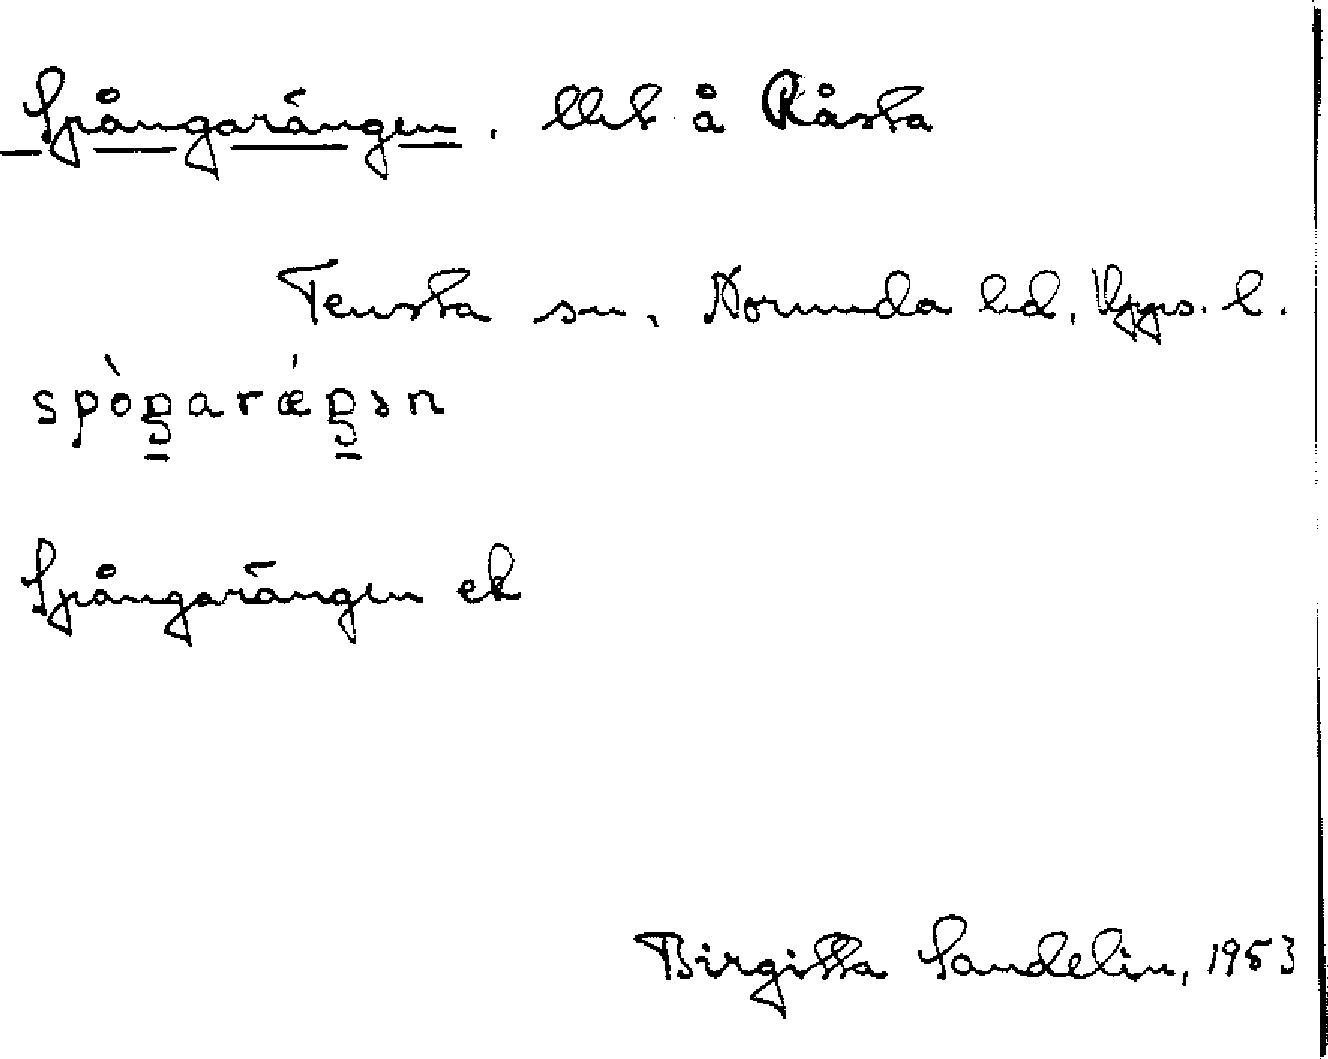 Spångarängen. Utl å Råsta
Tensta sn, Norunda hd, Upps. l.
spòŋarǽŋən
Spångarängen ek
Birgitta Sandelin, 1953